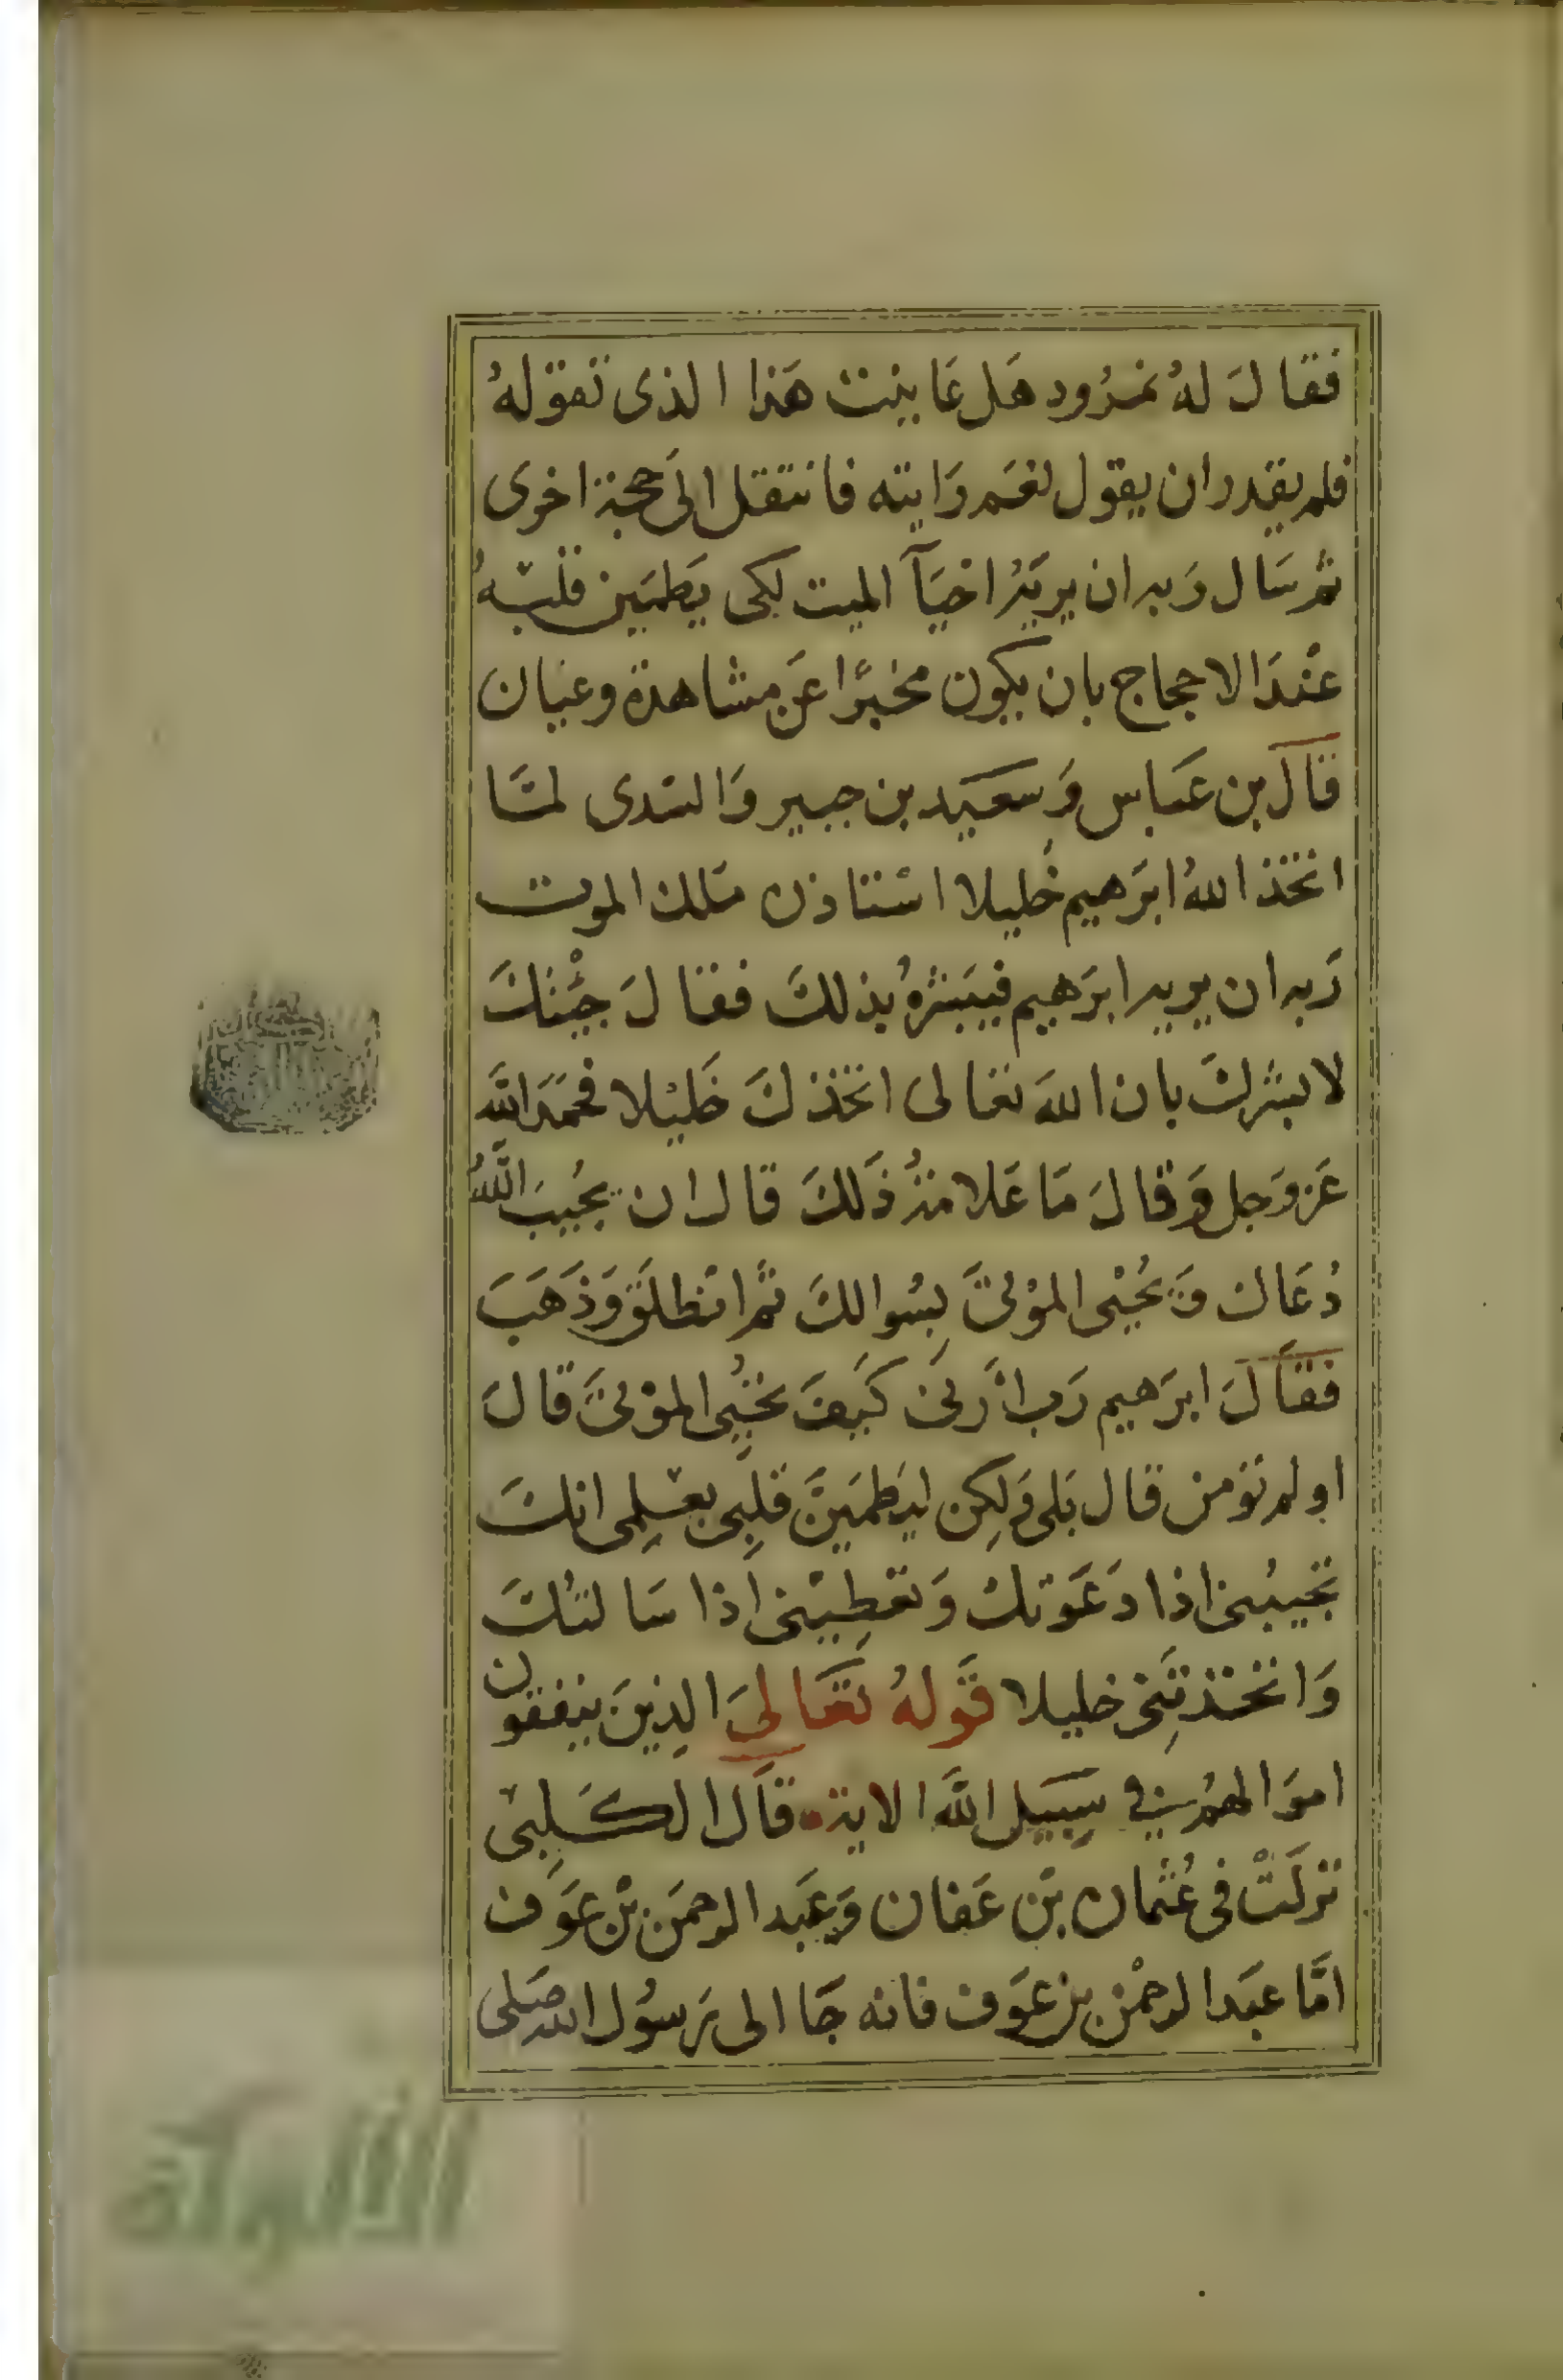 فقال لهُ نمرُود هَل عَاينت هَذا الذى تقولهُ
فلم يقدر ان يقول نعَم رَايته فانتقل الىَ حجة اخرى
ثم سَال رَبه ان يريَهُ احيَآ الميت لكى يَطمَين قلبهُ
عنْدَ الاحجاج بان يكون مخبرًا عَن مشاهدة وعيان
قالَ بن عَباس وَسعَيد بن جبير وَالسدى لمَّا
اتخذ اللهُ ابرَهيم خَليلا استاذن مَلك الموت
رَبه ان يريه ابرَهيم فيبَشرهُ بذلكَ فقالَ جئْتكَ
لابشركَ بان اللهَ تعَالى اتخذكَ خَليْلا فحمَدَ اللَّه
عَزوَجل وَقالَ مَا عَلامةُ ذَلكَ قال ان يجُيبَ اللَّهُ
دُعَاك وَيحُيْى الموْتىَ بِسُوالكَ ثمَّ انْطلَقَ وَذَهَبَ
فقالَ ابرَهيم رَب ارَنىِ كَيفَ تحُيِى الموْتىَ قالَ
اولم تؤمن قال بَلى وَلكِن ليَطمَينَّ قلبِى بعْلِمى انكَ
تجيبُنى اذا دَعَوتكَ وَتعْطِيْنى اذا سَالتكَ
وَاتخذتَنِى خليلا قَولهُ تعَالىَ الذِينَ ينفقون
اموَالهمُ في سَبيَل اللَّه الايته قالَ الكَلِبى
نزلَتْ فى عُثمان بْن عَفان وَعبَد الرحمَن بْن عَوَف
امَّا عبَد الرحمْن بن عَوَف فانه جَا الى رَسوُل الله صَلى
الألوكة